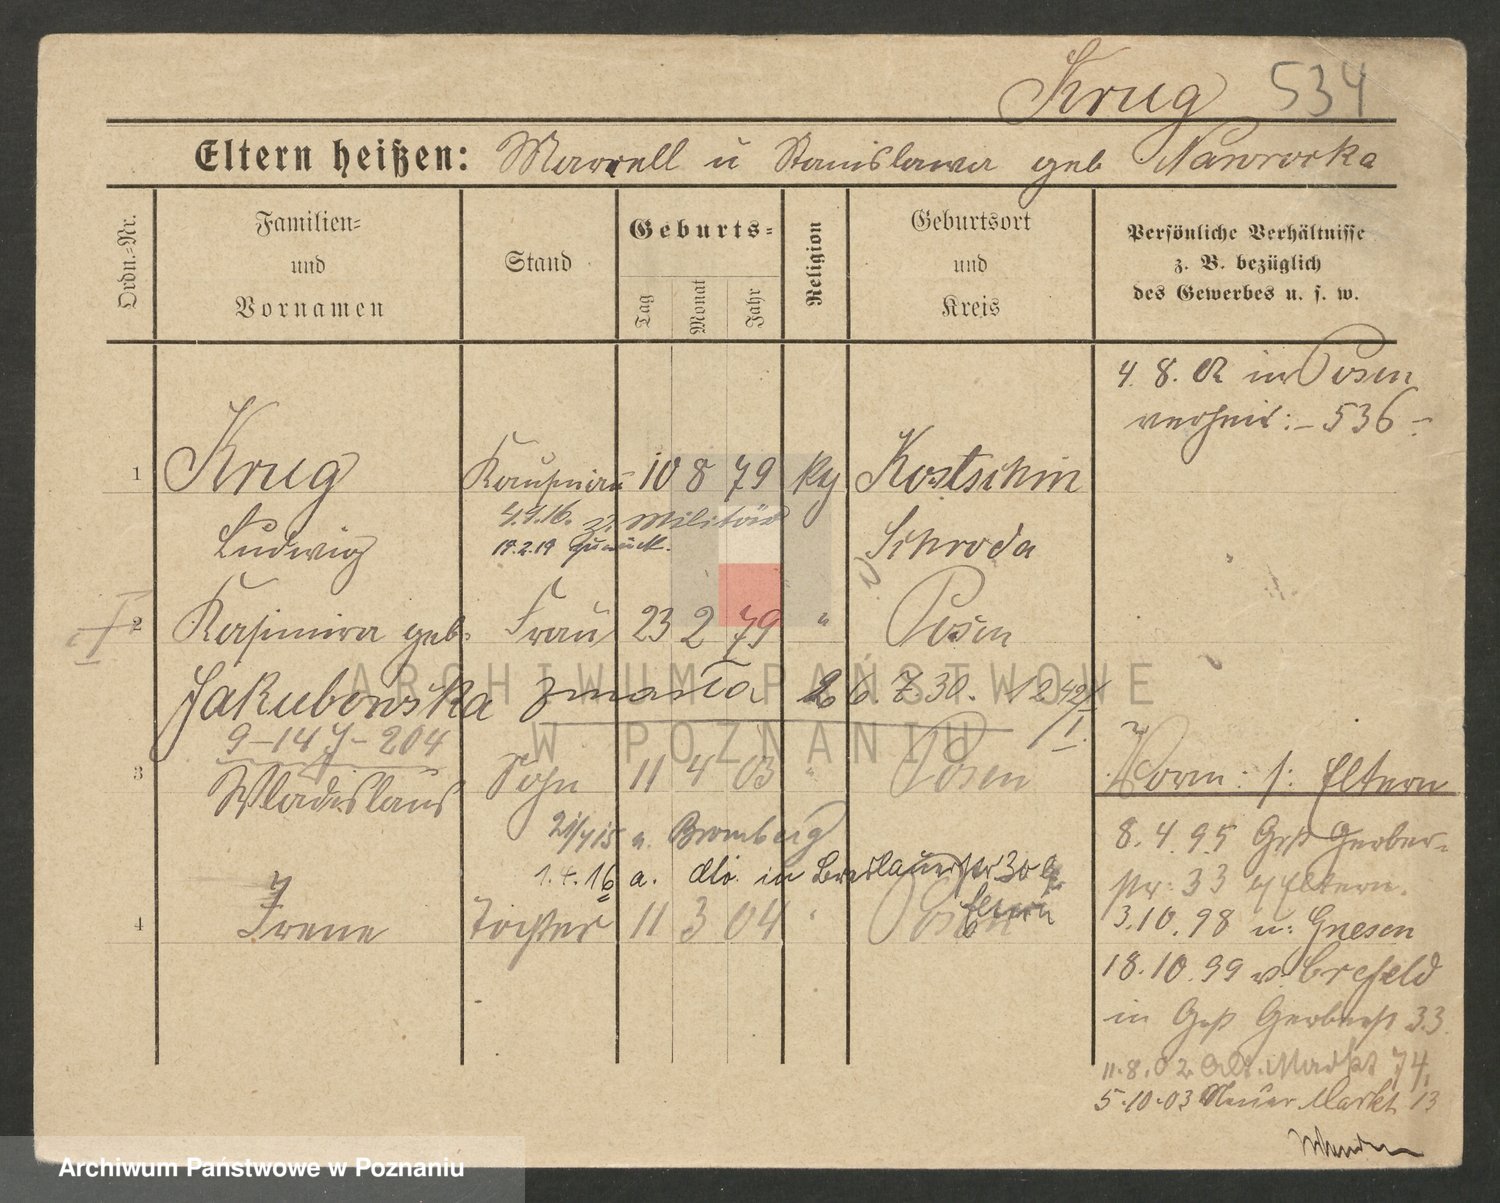 Krug 534
Eltern heißen: Marzell u Stanislawa geb Nawrocka
Ordn.-Nr.
Familien-
und
Vornamen
Stand
Geburts-
Tag Monat Jahr
Religion
Geburtsort
und
Kreis
Persönliche Verhältnisse
z. B. bezüglich
des Gewerbes u. s. w.
4. 8. 02 in Posen
verheir: - 536 -
1 Krug Kaufmann 10 8 79 Kostschin
4.9.16. z. Militär
Ludwig 19.2.19 zurück. Schroda
2 Kasimira geb. Frau 23 2 79 " Posen
Jakubowska zmarła 26. 7. 30.
9-14
3 Wladislaus Sohn 11 4 03 " Posen
Vorm: s: Eltern
a. Bromberg
8. 4. 95 Groß Gerber-
str. 33 Eltern.
1.4.16 a. dto. in Breslauerstr 30
Eltern
4 Irene Tochter 11 3 04 " Posen
3.10.98 n: Gnesen
18.10.99 v. Crefeld
in Groß Gerberst 33
11.8.02 Alt. Markt 74,
5.10.03 Neuer Markt 13
ARCHIWUM PAŃSTWOWE
W POZNANIU
Archiwum Państwowe w Poznaniu